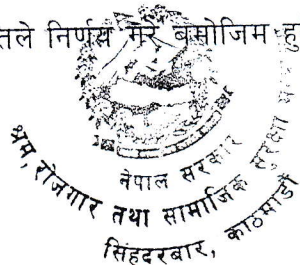 तले निर्णय गरे बमोजिम हु
नेपाल सरकार
श्रम, रोजगार तथा सामाजिक सुरक्षा
सिंहदरबार, काठमाडौं